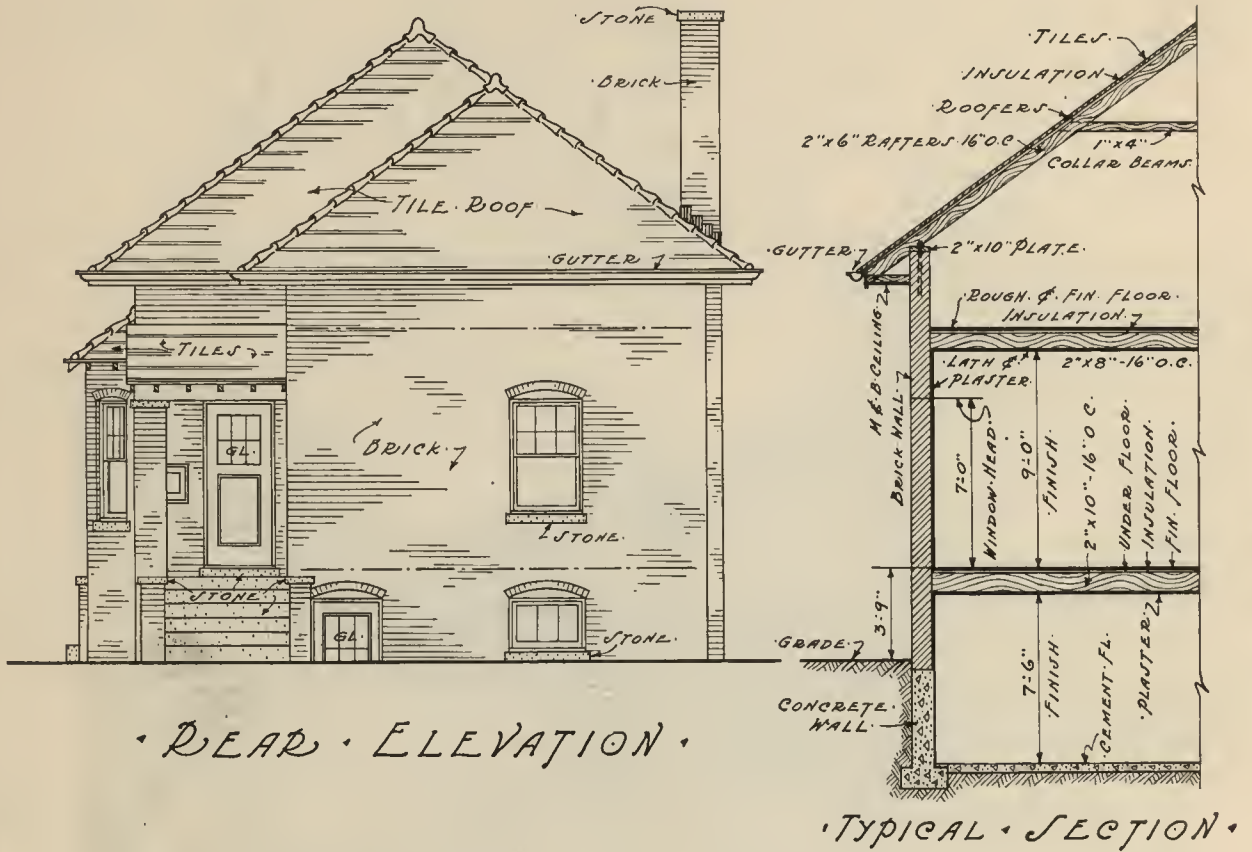 STONE
BRICK
TILE · ROOF
GUTTER
TILES
GL.
BRICK
STONE
STONE
GL.
STONE
· REAR · ELEVATION ·
TILES
INSULATION
ROOFERS
2"x6" RAFTERS · 16" O.C.
1"x4"
COLLAR BEAMS
GUTTER
2"x10" PLATE
ROUGH & FIN. FLOOR
INSULATION
M & B CEILING
BRICK WALL
LATH &
PLASTER
2"x8"-16" O.C.
7'-0"
WINDOW HEAD
9'-0"
FINISH
2"x10"-16" O.C.
UNDER FLOOR
INSULATION
FIN. FLOOR
3'-9"
GRADE
CONCRETE
WALL
7'-6"
FINISH
CEMENT FL.
PLASTER
· TYPICAL · SECTION ·